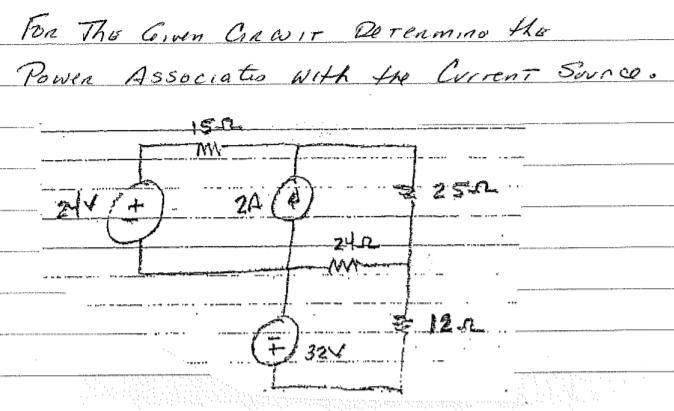 For The Given Circuit Determine the
Power Associated with the Current Source.
15Ω
24V
+
-
2A
25Ω
24Ω
12Ω
-
+
32V